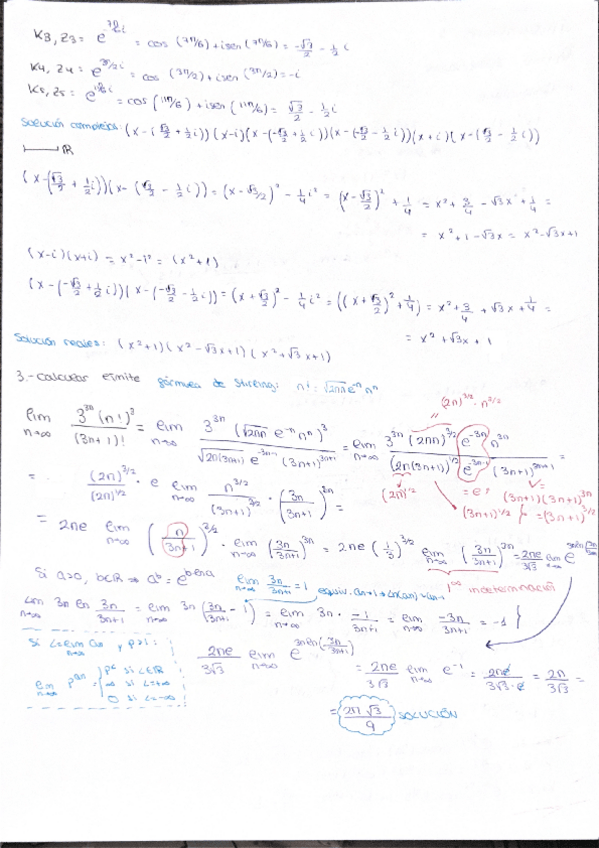 K3, Z3 = e^{7π/6 i} = cos (7π/6) + i sen (7π/6) = -√3/2 - 1/2 i
K4, Z4 = e^{3π/2 i} = cos (3π/2) + i sen (3π/2) = -i
K5, Z5 = e^{11π/6 i} = cos (11π/6) + i sen (11π/6) = √3/2 - 1/2 i
Solución compleja: (x - (√3/2 + 1/2 i)) (x - i) (x - (-√3/2 + 1/2 i)) (x - (-√3/2 - 1/2 i)) (x + i) (x - (√3/2 - 1/2 i))
ℝ
(x - (√3/2 + 1/2 i)) (x - (√3/2 - 1/2 i)) = (x - √3/2)² - 1/4 i² = (x - √3/2)² + 1/4 = x² + 3/4 - √3x + 1/4 =
= x² + 1 - √3x = x² - √3x + 1
(x - i)(x + i) = x² - i² = (x² + 1)
(x - (-√3/2 + 1/2 i)) (x - (-√3/2 - 1/2 i)) = (x + √3/2)² - 1/4 i² = ((x + √3/2)² + 1/4) = x² + 3/4 + √3x + 1/4 =
= x² + √3x + 1
Solución reales: (x² + 1)(x² - √3x + 1)(x² + √3x + 1)
3.- Calcular límite fórmula de Stirling: n! = √2πn e^{-n} n^n
(2π)^{3/2} · n^{3/2}
lim n→∞ 3^{3n} (n!)³ / (3n+1)! = lim n→∞ 3^{3n} (√2πn e^{-n} n^n)³ / √2π(3n+1) e^{-3n-1} (3n+1)^{3n+1} = lim n→∞ 3^{3n} (2πn)^{3/2} e^{-3n} n^{3n} / (2π(3n+1))^{1/2} e^{-3n-1} (3n+1)^{3n+1} =
(2π)^{1/2} = e? (3n+1)(3n+1)^{3n}
= (2π)^{3/2} / (2π)^{1/2} · e lim n→∞ n^{3/2} / (3n+1)^{3/2} · (3n / 3n+1)^{3n} = (3n+1)^{1/2} = (3n+1)^{3/2}
= 2πe lim n→∞ (n / 3n+1)^{3/2} · lim n→∞ (3n / 3n+1)^{3n} = 2πe (1/3)^{3/2} lim n→∞ (3n / 3n+1)^{3n} = 2πe / 3√3 lim n→∞ e^{3n ln (3n / 3n+1)}
Si a>0, b∈ℝ ⇒ a^b = e^{b ln a} lim n→∞ 3n / 3n+1 = 1 1^∞ indeterminación
lim n→∞ 3n ln 3n / 3n+1 = lim n→∞ 3n (3n / 3n+1 - 1) = lim n→∞ 3n · -1 / 3n+1 = lim n→∞ -3n / 3n+1 = -1
Si L = lim n→∞ an y p>1:
lim n→∞ p^{an} = { p^L si L∈ℝ
∞ si L=+∞
0 si L=-∞
2πe / 3√3 lim n→∞ e^{3n ln (3n / 3n+1)}
= 2πe / 3√3 lim n→∞ e^{-1} = 2πe / 3√3·e = 2π / 3√3 =
= 2π√3 / 9 SOLUCIÓN